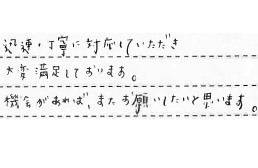 迅速・丁寧に対応していただき
大変満足しております。
機会があれば、またお願いしたいと思います。